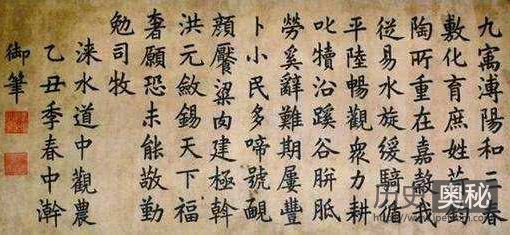 九寓溥陽和三春
敷化育庶姓荷甄
陶所重在嘉穀我
從易水旋緩騎循
平陸暢觀眾力耕
叱犢沿蹊谷胼胝
勞奚辭難期屢豐
卜小民多啼號靦
顏饜粱肉建極斡
洪元斂錫天下福
奢願恐未能敬勤
勉司牧
淶水道中觀農
乙丑季春中澣
御筆
历史奥秘